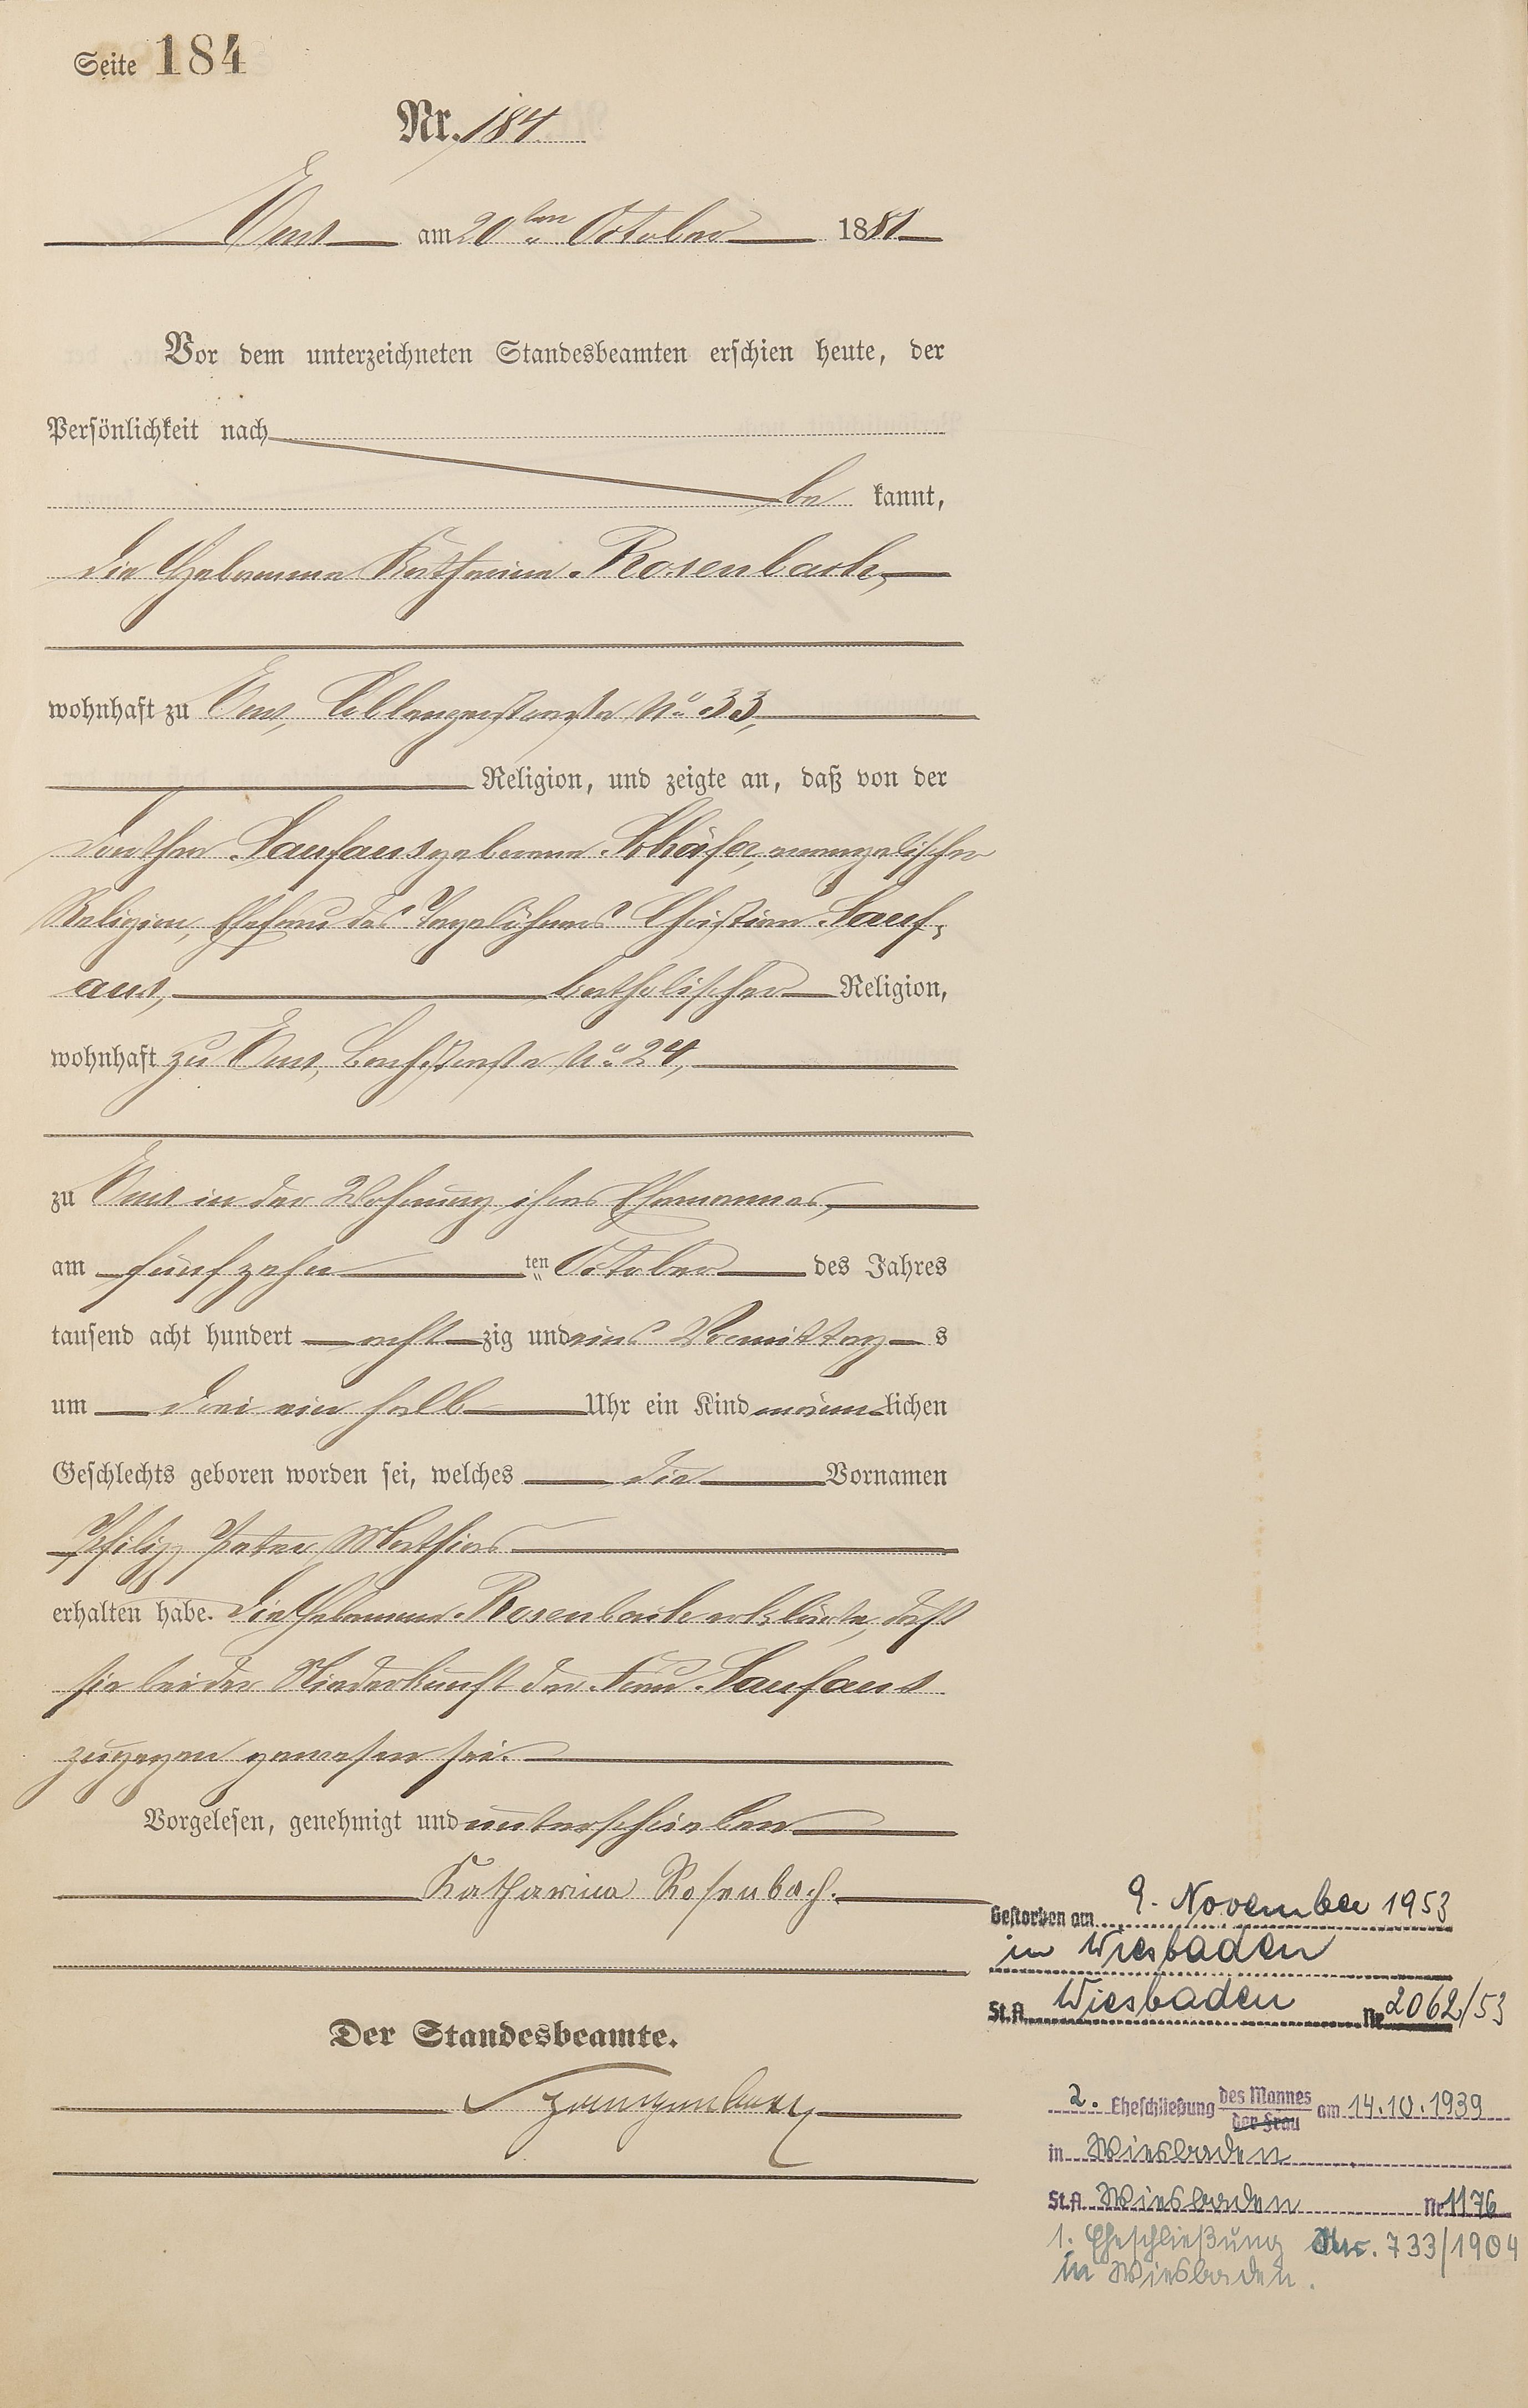 Seite 184
Nr. 184
Ems am 20ten October 1881
Vor dem unterzeichneten Standesbeamten erschien heute, der
Persönlichkeit nach
be kannt,
die Hebamme Katharina Rosenbach,
wohnhaft zu Ems, Coblenzerstraße No 33,
Religion, und zeigte an, daß von der
Saufaus geborene Schäfer, evangelischer
Religion, Ehefrau des Tagelöhners Christian Sauf-
aus, katholischer Religion,
wohnhaft zu Ems, Bachstraße No 24,
zu Ems in der Wohnung ihres Ehemannes,
am fünfzehn ten October des Jahres
tausend acht hundert acht zig und eins Vormittag s
um drei ein halb Uhr ein Kind männ lichen
Geschlechts geboren worden sei, welches die Vornamen
Philipp Peter Mathias
erhalten habe. Die Hebamme Rosenbach erklärte, daß
sie bei der Niederkunft der Frau Saufaus
zugegen gewesen sei.
Vorgelesen, genehmigt und unterschrieben
Katharina Rosenbach.
Der Standesbeamte.
Gestorben am 9. November 1953
in Wiesbaden
St.A. Wiesbaden Nr. 2062/53
2. Eheschließung des Mannes der Frau am 14.10.1939
in Wiesbaden
St.A. Wiesbaden Nr. 1176
1. Eheschließung Nr. 733/1904
in Wiesbaden.